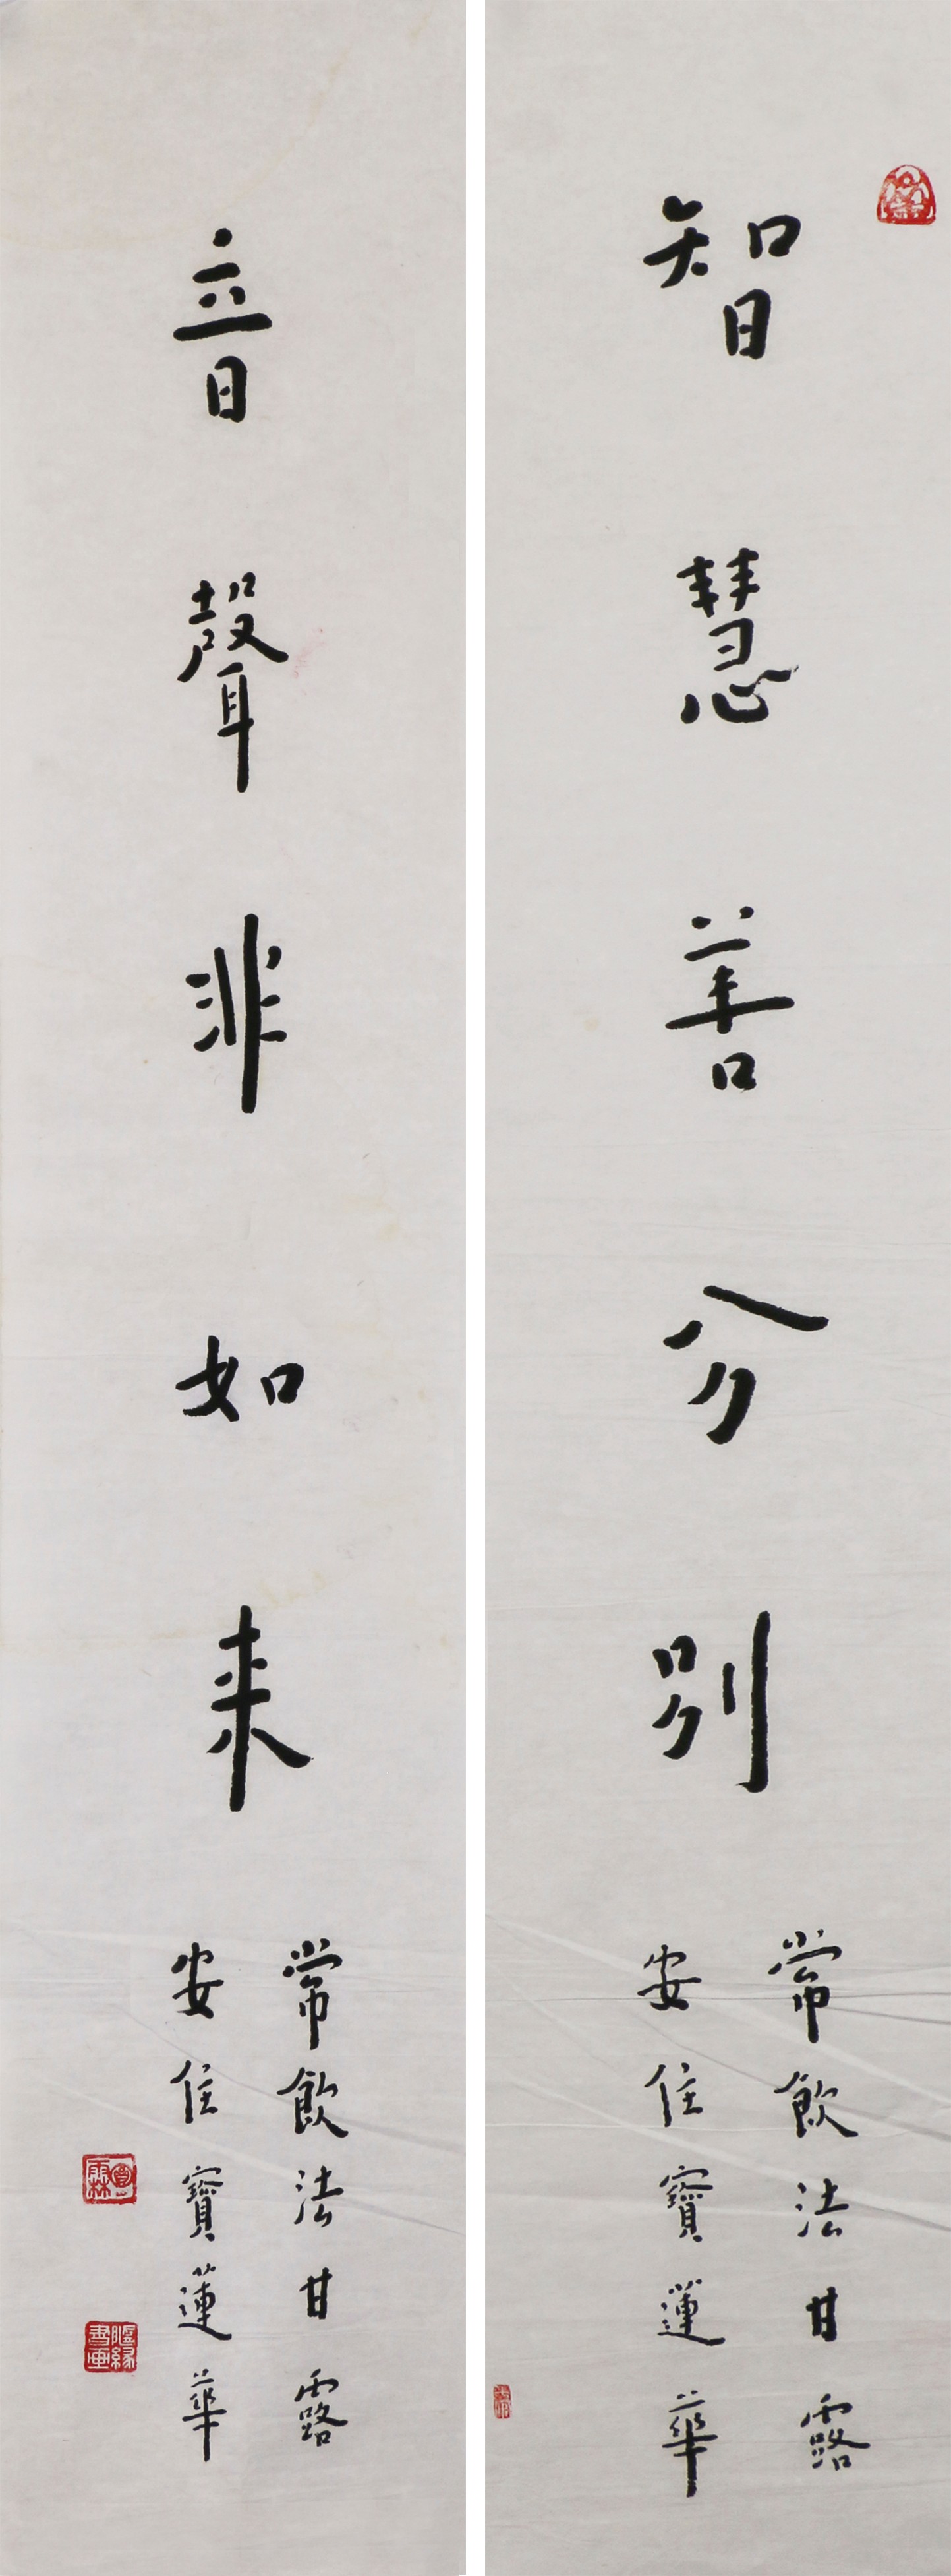 智慧善分別
常飲法甘露
安住寶蓮華
音聲非如来
常飲法甘露
安住寶蓮華